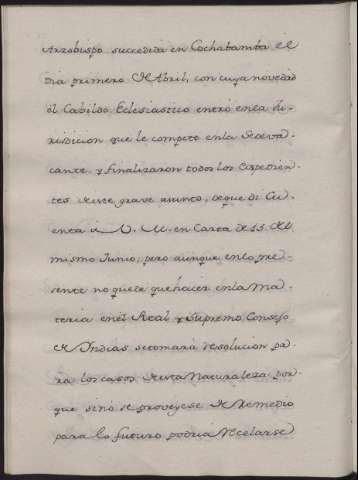 Arzobispo succedida en Cochabamba el
dia primero de Abril, con cuya novedad
el Cabildo Eclesiastico entró en la Ju-
risdicion que le compete en la Sede va-
cante, y finalizaron todos los Expedien-
tes de este grave asunto, de que di Cu-
enta a V. M. en Carta de 15. del
mismo Junio; pero aunque en lo pre-
sente no quede que hacer en la Ma-
teria en el Real y Supremo Consejo
de Indias se tomará resolucion pa-
ra los casos de esta Naturaleza por
que sino se proveyese de Remedio
para lo futuro podria recelarse